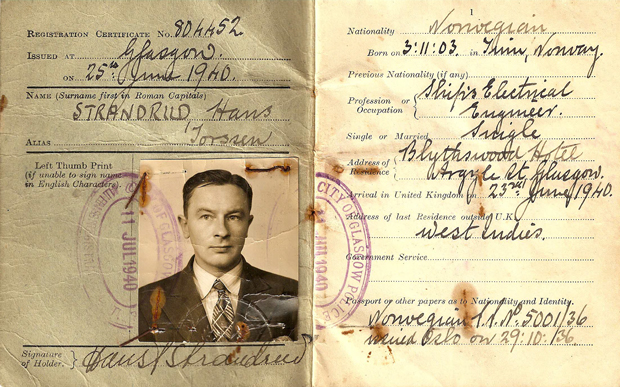 REGISTRATION CERTIFICATE No. 804452.
ISSUED AT Glasgow.
ON 25th June 1940.
NAME (Surname first in Roman Capitals)
STRANDRUD Hans
Torssen
ALIAS
Left Thumb Print
(if unable to sign name
in English Characters).
CITY OF GLASGOW POLICE
11 JUL 1940
Signature
of Holder.
Hans T Strandrud
1
Nationality Norwegian
Born on 3:11:03. in Norway.
Previous Nationality (if any)
Profession or
Occupation
Ship's Electrical
Engineer.
Single or Married Single
Address of
Residence
Blythswood Hotel
Argyle St. Glasgow.
Arrival in United Kingdom on 23rd June 1940.
Address of last Residence outside U.K.
West Indies.
Government Service
Passport or other papers as to Nationality and Identity.
Norwegian No. 5001/36
issued Oslo on 29:10:36.